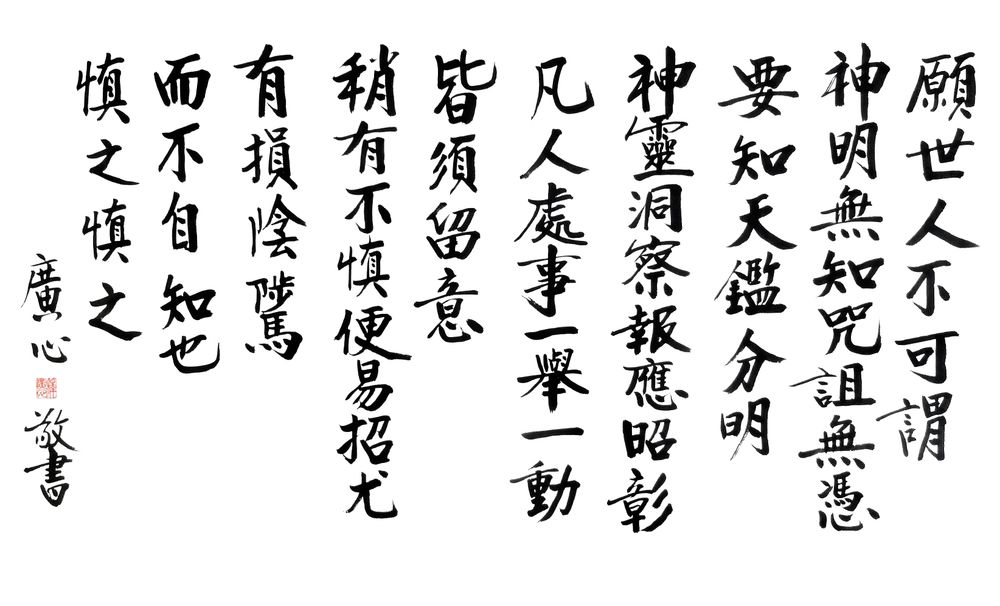 願世人不可謂
神明無知咒詛無憑
要知天鑑分明
神靈洞察報應昭彰
凡人處事一舉一動
皆須留意
稍有不慎便易招尤
有損陰騭
而不自知也
慎之慎之
廣心
敬書